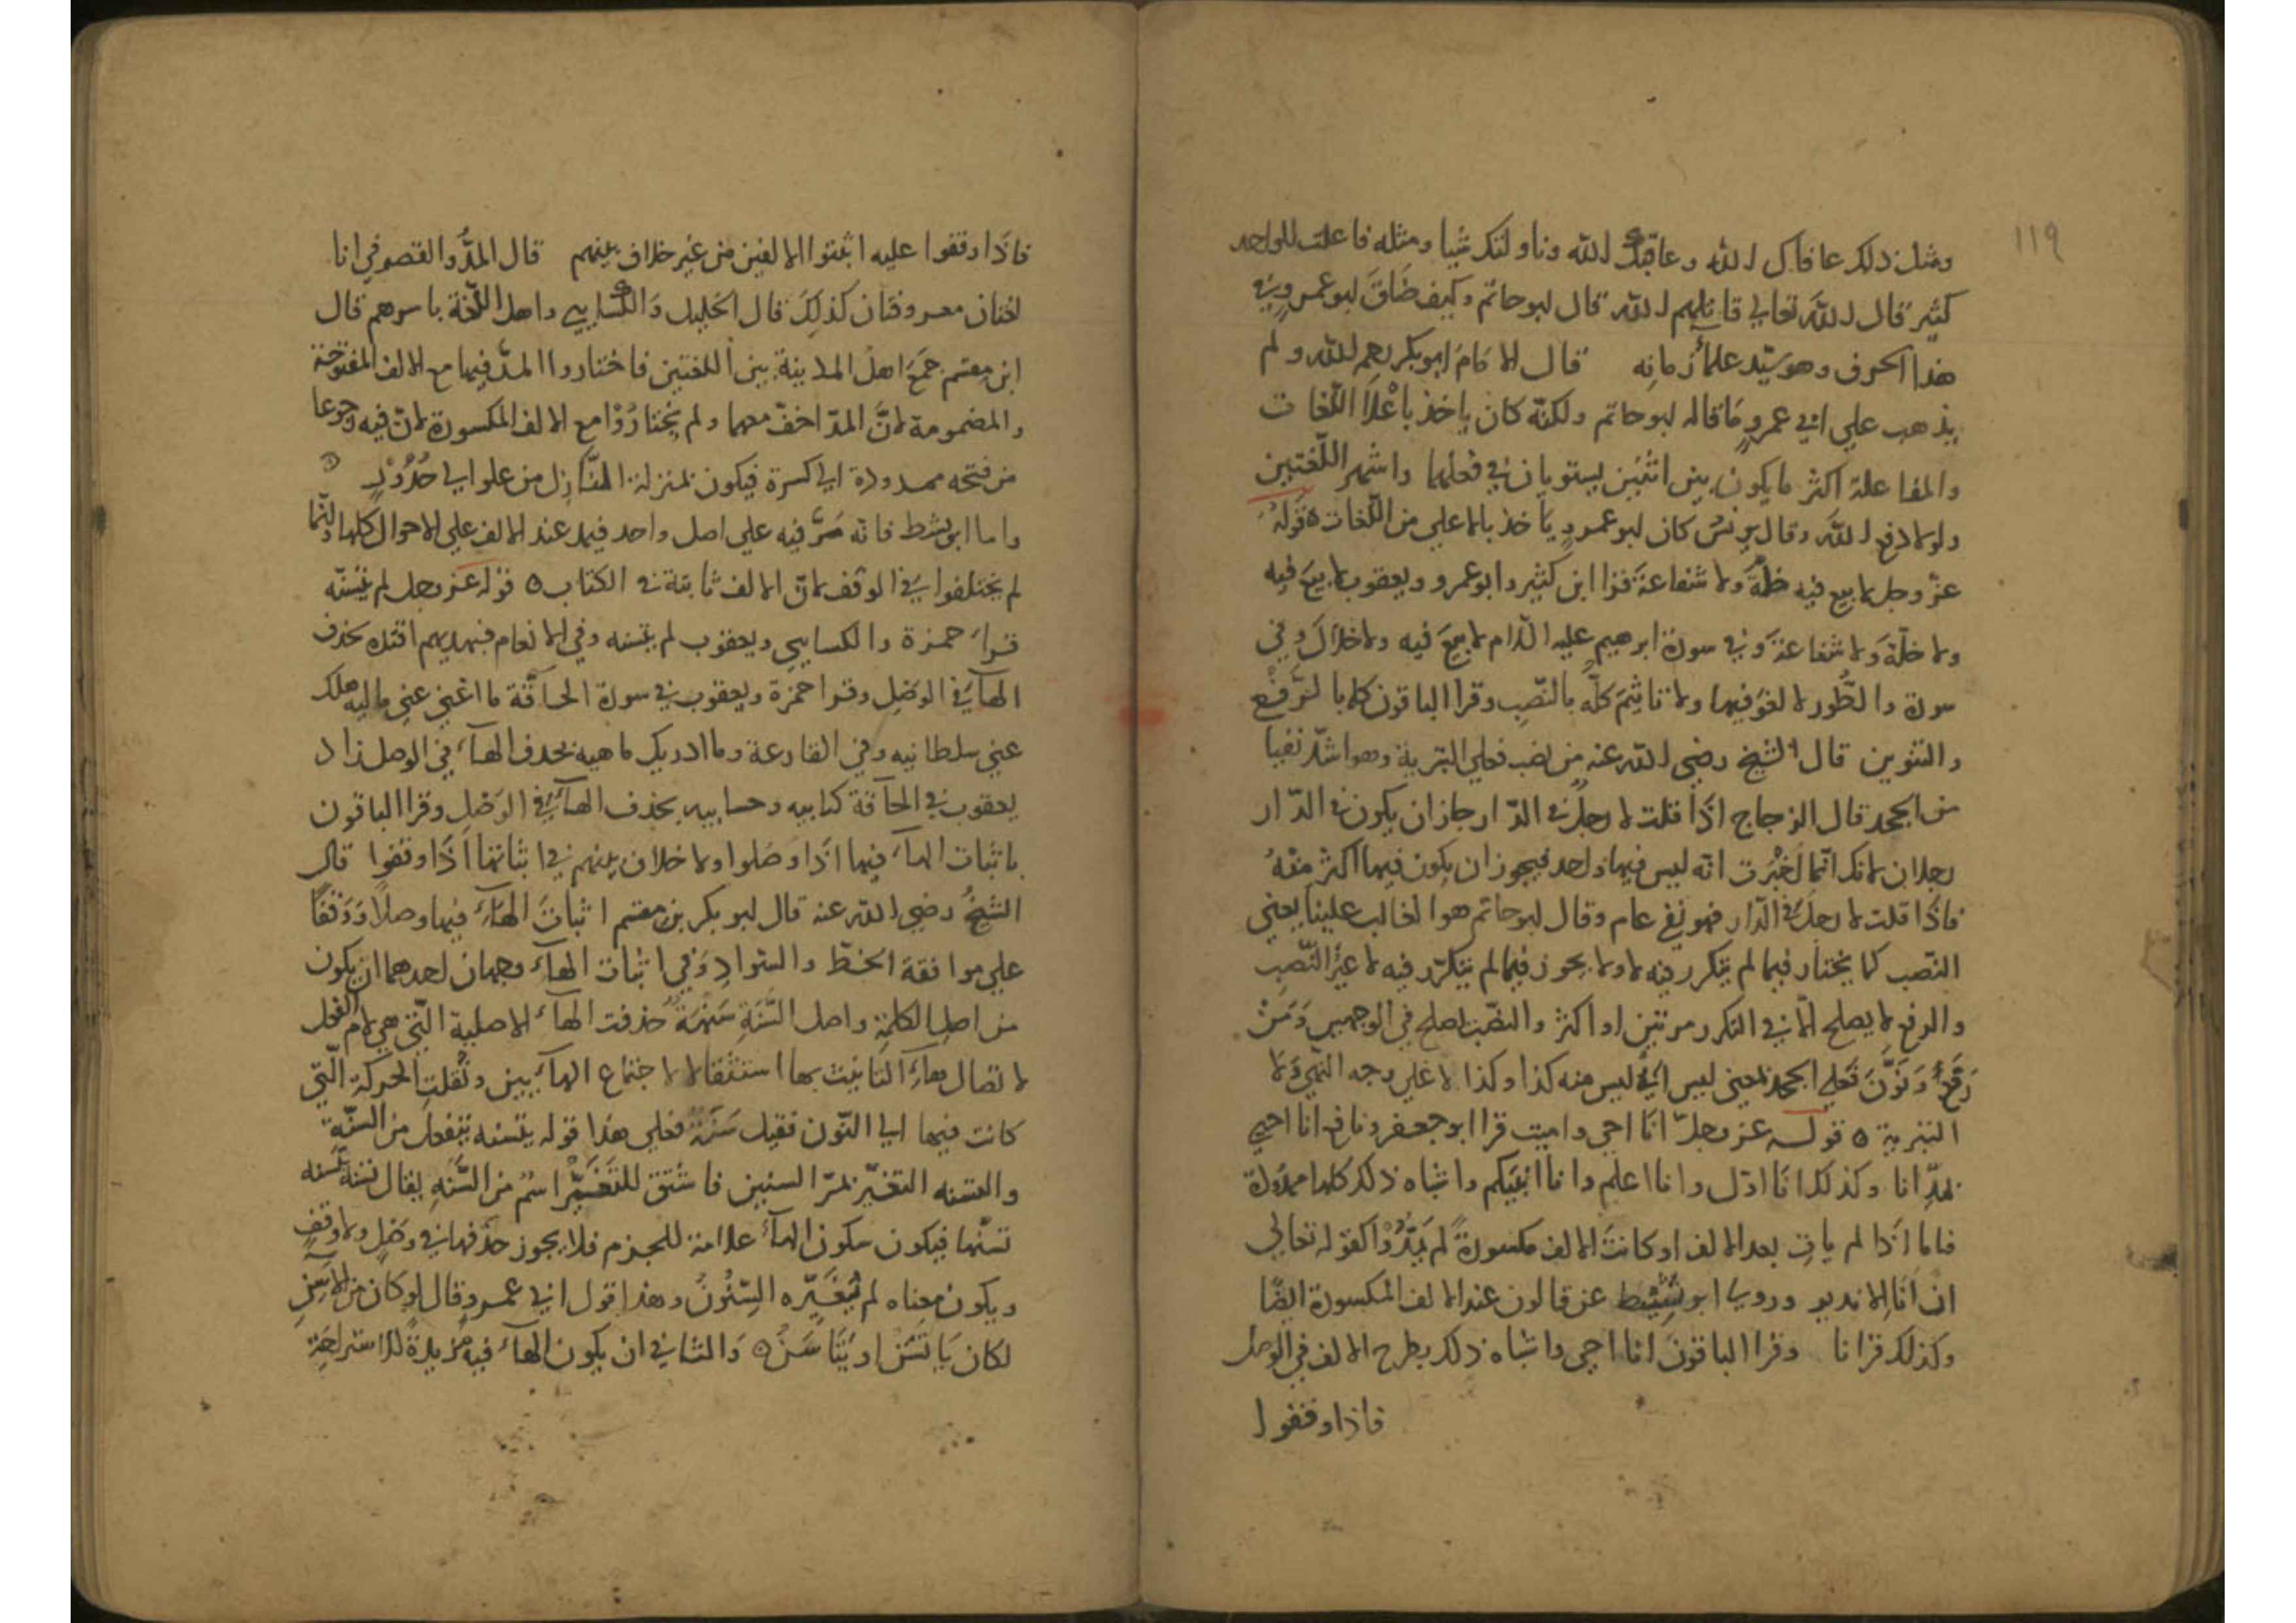 ١١٩
ومثل ذلك عافاك الله وعاقبك الله وناولتك شيا ومثله فاعلت للواحد
كثير قال الله تعالي قاتلهم الله قال ابو حاتم وكيف ضاق ابو عمرو في
هذا الحرف وهو سيّد علماء زمانه قال الامام ابو بكر رحمه الله ولم
يذهب علي ابي عمرو ما قاله ابو حاتم ولكنّه كان ياخذ باعلا اللّغات
والمفاعلة اكثر ما يكون بين اثنين يستويان في فعلهما واشهر اللّغتين
ولولا دفع الله وقال يونس كان ابو عمرو ياخذ بالاعلي من اللّغات ه قوله
عزّ وجل لا بيع فيه ولا خلّة ولا شفاعة قرا ابن كثير وابو عمرو ويعقوب لا بيعَ فيه
ولا خلّةَ ولا شفاعةَ وفي سورة ابرهيم عليه السّلام لا بيعَ فيه ولا خلالَ وفي
سورة والطّور لا لغوَ فيها ولا تاثيمَ كلّه بالنّصب وقرا الباقون كله بالرّفع
والتنوين قال الشيخ رضي الله عنه من نصب فعلي التبرية وهو اشدّ نفيا
من الجحد قال الزجاج اذا قلت لا رجلٌ في الدّار جاز ان يكون في الدّار
رجلان لانك انّما اخبرت انّه ليس فيها واحد فيجوز ان يكون فيها اكثر منهُ
فاذا قلت لا رجلَ في الدّار فهو نفي عام وقال ابو حاتم هو الغالب علينا يعني
النّصب كما يختار فيما لم يتكرر فيه لا ولا يجوز فيما لم يتكرّر فيه لا غيرُ النّصب
والرفع لا يصلح الّا في التكرر مرتين او اكثر والنصب يصلح في الوجهين وَمَنْ
رَفَعَ وَنَوَّنَ فعلي الجحد بمعني ليس اي ليس منه كذا وكذا لا علي وجه النّهي ولا
التبرية ه قوله عزّ وجلّ انا احي واميت قرا ابو جعفر ونافع انا احيي
بمدّ انا وكذلك انا اوّل وانا اعلم وانا انبيكم واشباه ذلك كلها ممدودة
فاما اذا لم يات بعد الالف او كانت الالف مكسورةً لم يَمُدُّوْا كقوله تعالي
ان انا الا نذير وروي ابو نشيط عن قالون عند الالف المكسورة ايضًا
وكذلك قرانا وقرا الباقون انا احي واشباه ذلك بطرح الالف في الوصل
فاذا وقفوا
فاذا وقفوا عليه اثبتوا الالفين من غير خلاف بينهم قال المدُّ والقصر في انا
لغتان معروفتان كذلك قال الخليل والكسايي واهل اللّغة باسرهم قال
ابن مقسم جمع اهل المدينة بين اللغتين فاختاروا المدّ فيها مع الالف المفتوحة
والمضمومة لانّ المدّ اخفّ معهما ولم يختارُوْا مع الالف المكسورة لانّ فيه رجوعا
من فتحه ممدودة الي كسرة فيكون بمنزلة النّازل من علو الي حُدُوْرٍ
واما ابو نشيط فانّه مَرَّ فيه علي اصل واحد فيمد عند الالف علي الاحوال كلها وانّما
لم يختلفوا في الوقف لانّ الالف ثابتة في الكتاب ه قوله عز وجل لم يتسنّه
قرا حمزة والكسايي ويعقوب لم يتسنه وفي الانعام فبهديهم اقتده بحذف
الهاء في الوصل وقرا حمزة ويعقوب في سورة الحاقّة ما اغني عني ماليه هلك
عني سلطانيه وفي القارعة وما ادريك ما هيه بحذف الهاء في الوصل زاد
يعقوب في الحاقة كتابيه وحسابيه بحذف الهاء في الوصل وقرا الباقون
باثبات الهاء فيها اذا وصلوا ولا خلاف بينهم في اثباتها اذا وقفوا قال
الشيخُ رضي الله عنه قال ابو بكر بن مقسم اثبات الهاء فيها وصلًا ووقفًا
علي موافقة الخط والسّواد وفي اثبات الهاء وجهان احدهما ان يكون
من اصل الكلمة واصل السَّنَةِ سَنْهَةٌ حذفت الهاء الاصلية الّتي هي لام الفعل
لاتصال هاء التانيث بها استثقالا لاجتماع الهاءين ونُقلت الحركة الّتي
كانت فيها الي النّون فقيل سَنَةٌ فعلي هذا قوله يتسنه يتفعل من السنّة
والتسنه التغيّر بمرّ السنين فاشتق للتغيّر اسمٌ من السَّنَةِ يقال تسنّه يتسنّه
تسنّها فيكون سكون الهاء علامة للجزم فلا يجوز حذفها في وصْلٍ ولا وقفٍ
ويكون معناه لم تُغيّره السِّنُونُ وهذا قول ابي عمرو وقال لو كان من الآسنِ
لكان يَاتَسَنْ او يَتَاسَنْ ه والثاني ان يكون الهاء فيه مزيدةً للاستراحةِ